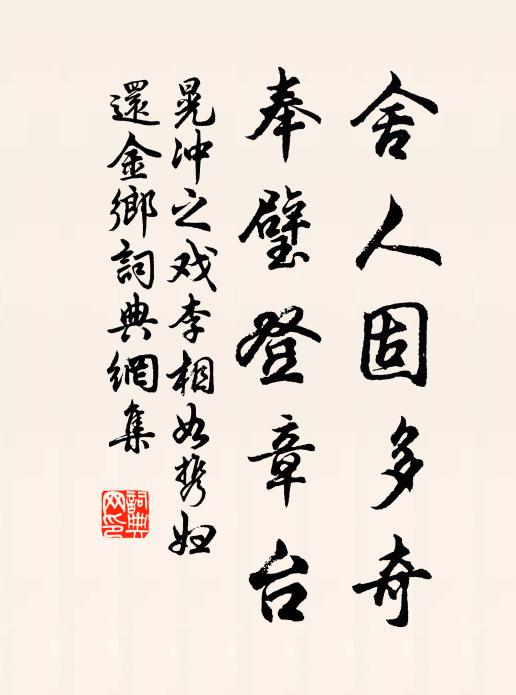 舍人固多奇
奉璧登章台
晁冲之戏李相如携妇
還金鄉詞典網集
詞典
网印